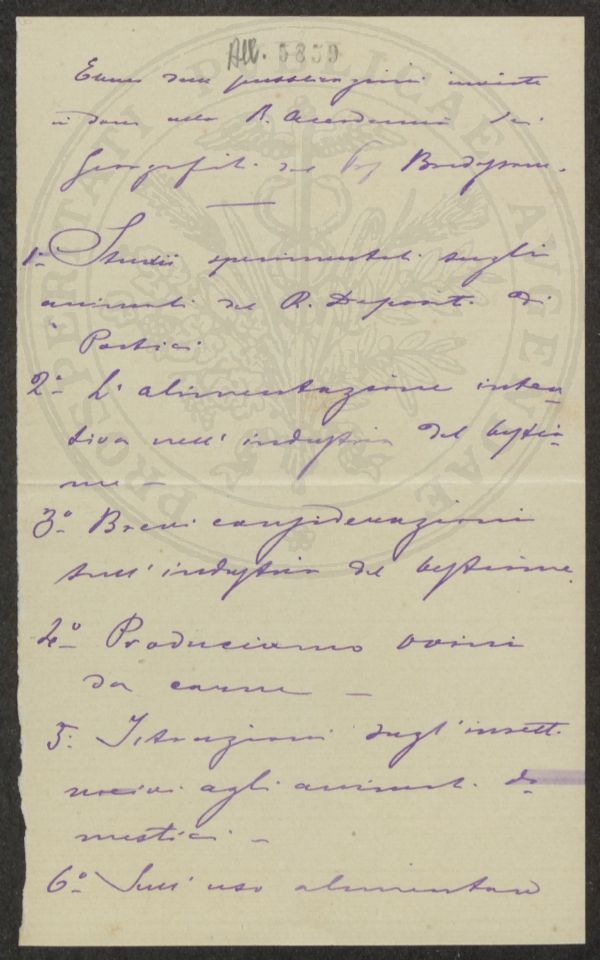 All. 5859
Elenco delle pubblicazioni inviate
in dono alla R. Accademia dei
Georgofili dal Prof Bradysone.
1º Studii sperimentali sugli
animali del R. Deposit. di
Portici
2º L'alimentazione inten-
siva nell'industria del bestia-
me —
3º Brevi considerazioni
sull'industria del bestiame
4º Produciamo ovini
da carne —
5º Istruzioni sugl'insetti
nocivi agli animali do
mestici —
6º Sull'uso alimentare
PROSPERITATI PUBLICAE AVGENDAE